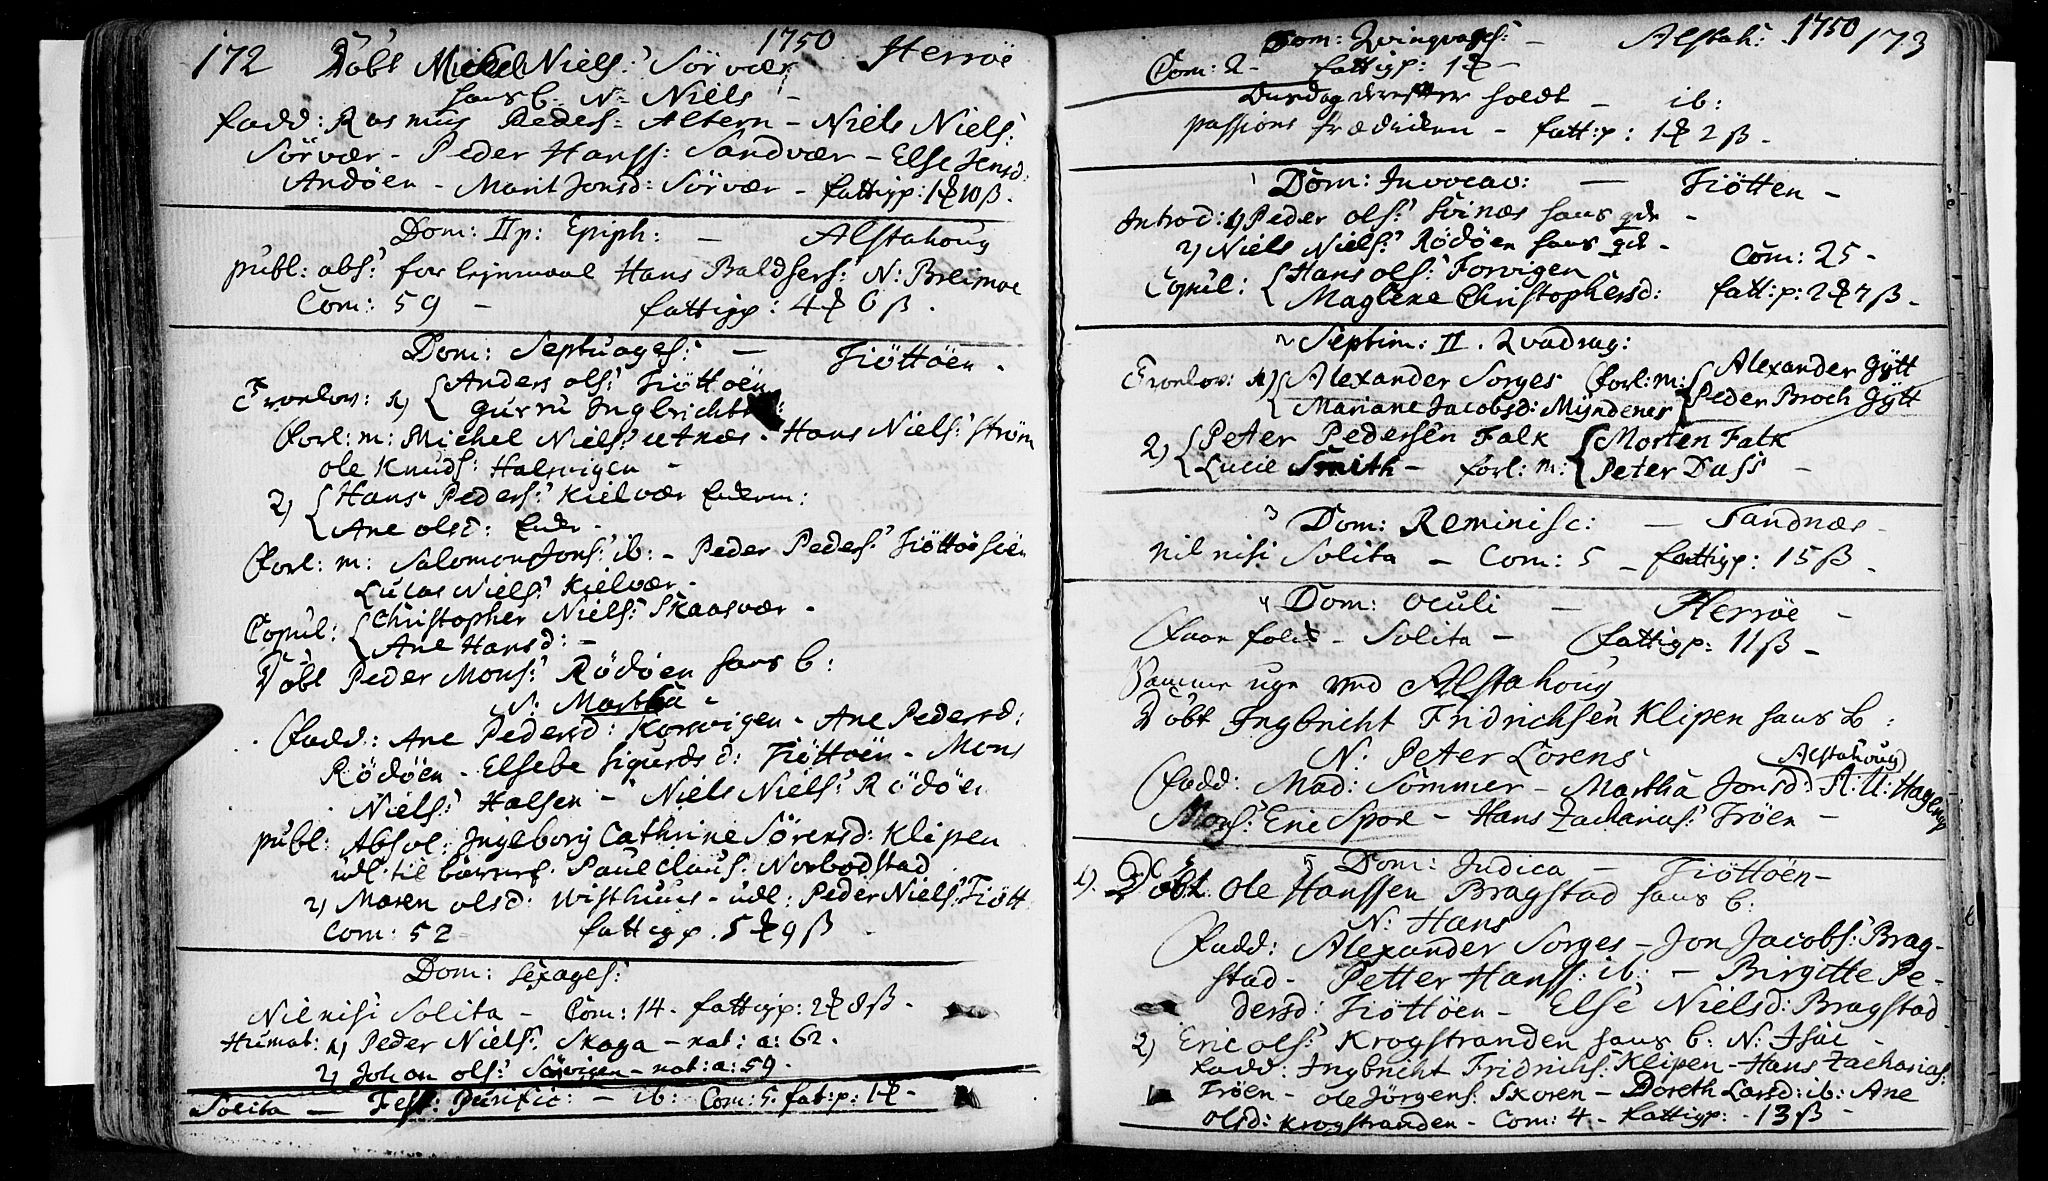 172 1750
Döbt Mickel Niels: Sörvær Herröe
hans b: N: Niels -
fadd: Rasmus Peders: Altern - Niels Niels:
Sörvær - Peder Hanss: Sandvær - Else Jensd:
Andöen - Marit Jonsd: Sörvær - fattigp: 1 10 ß.
Dom: II p: Epiph: - Alstahoug
publ: abs: for lejermaal Hans Baldsers: N: Breimoe
Com: 59 - fattigp: 4 6 ß.
Dom: Septuages: - Tiöttöen.
Trolov: 1) Anders ols: Tiöttöen
Gurru Ingbrichtsd:
Forl: m: Michel Niels: utnæs - Hans Niels: ström
ole Knuds: Halsvigen -
2) Hans Peders: Kielvær
Ane olsd:
Forl: m: Salomon Jons: ib: - Peder Peders:
Lucas Niels: Kielvær -
Copul: Christopher Niels: Skaasvær -
Ane Hansd: -
Döbt Peder Mons: Rödöen hans b:
N: Martha -
Fadd: Ane Pedersd: Korsvigen - Ane Pedersd:
Rödöen - Elsebe Sigurdsd: Tiöttöen - Mons
Niels: Halsen - Niels Niels: Rödöen
publ: Absol: Ingeborg Cathrine Sörensd: Klipen
udl: til barnef. Paul Claus: Norbodstad
2) Maren olsd: Wisthuus - udl: Peder Niels: Tiött
Com: 52 fattigp. 5 9 ß
Dom: Sexages:
Nil nisi Solita - Com: 14 - fattigp: 2 8 ß.
Humat: 1) Peder Niels: Skaga - nat: a: 62.
2) Johan ols: Sörvigen - nat: a: 59.
Solita - Fest: Purific: - ib: Com: 5. fat:p: 1 -
1750 173
Dom: Qvinqvages: - Alstah:
Com: 2 - fattigp: 1 -
holdt - ib:
passions prædiken - fatt:p: 1 2 ß -
Dom: Invocav: - Tiötten -
Introd: 1) Peder ols: Svinæs hans qde -
2) Niels Niels: Rödöen hans qde -
Com: 25 -
Copul: Hans ols: Forvigen
Maglene Christophersd: fatt:p: 2 7 ß -
Septim: II. Qvadrag:
Trolov: 1) Alexander Sorges forl: m: Alexander Gÿtt
Mariane Jacobsd: Mÿndener Peder Broch Gÿtt
2) Peter Pedersen Falk Morten Falk
Lucie Smith - forl: m: Peter Dass -
3 Dom: Reminisc: - Sandnæs -
nil nisi Solita - Com: 5 - fattigp: 15 ß -
4 Dom: Oculi - Herröe -
Solita - fattigp: 11 ß -
Samme uge ved Alstahoug
Döbt Ingbricht Fridrichsen Klipen hans b:
N: Peter Lorens
Alstahoug
Fadd: Mad: Sömmer - Martha Jonsd: A: U: Hagerup
Mons: Eric Spore - Hans Zacharias: Tröen -
5 Dom: Judica - Tiöttöen -
1). Döbt Ole Hanssen Bragstad hans b:
N: Hans
Fadd: Alexander Sorges - Jon Jacobs: Brag-
stad - Petter Hanss: ib: - Birgitte Pe-
dersd: Tiöttöen - Else Nielsd: Bragstad
2) Eric ols: Krogstranden hans b: N: Isac -
fadd: Ingbricht Fridrichs: Klipen - Hans Zacharias:
Tröen - ole Jörgens: Skoren - Doreth Larsd: ib: Ane
olsd: Krogstranden - Com: 4 - fattigp: - 13 ß -